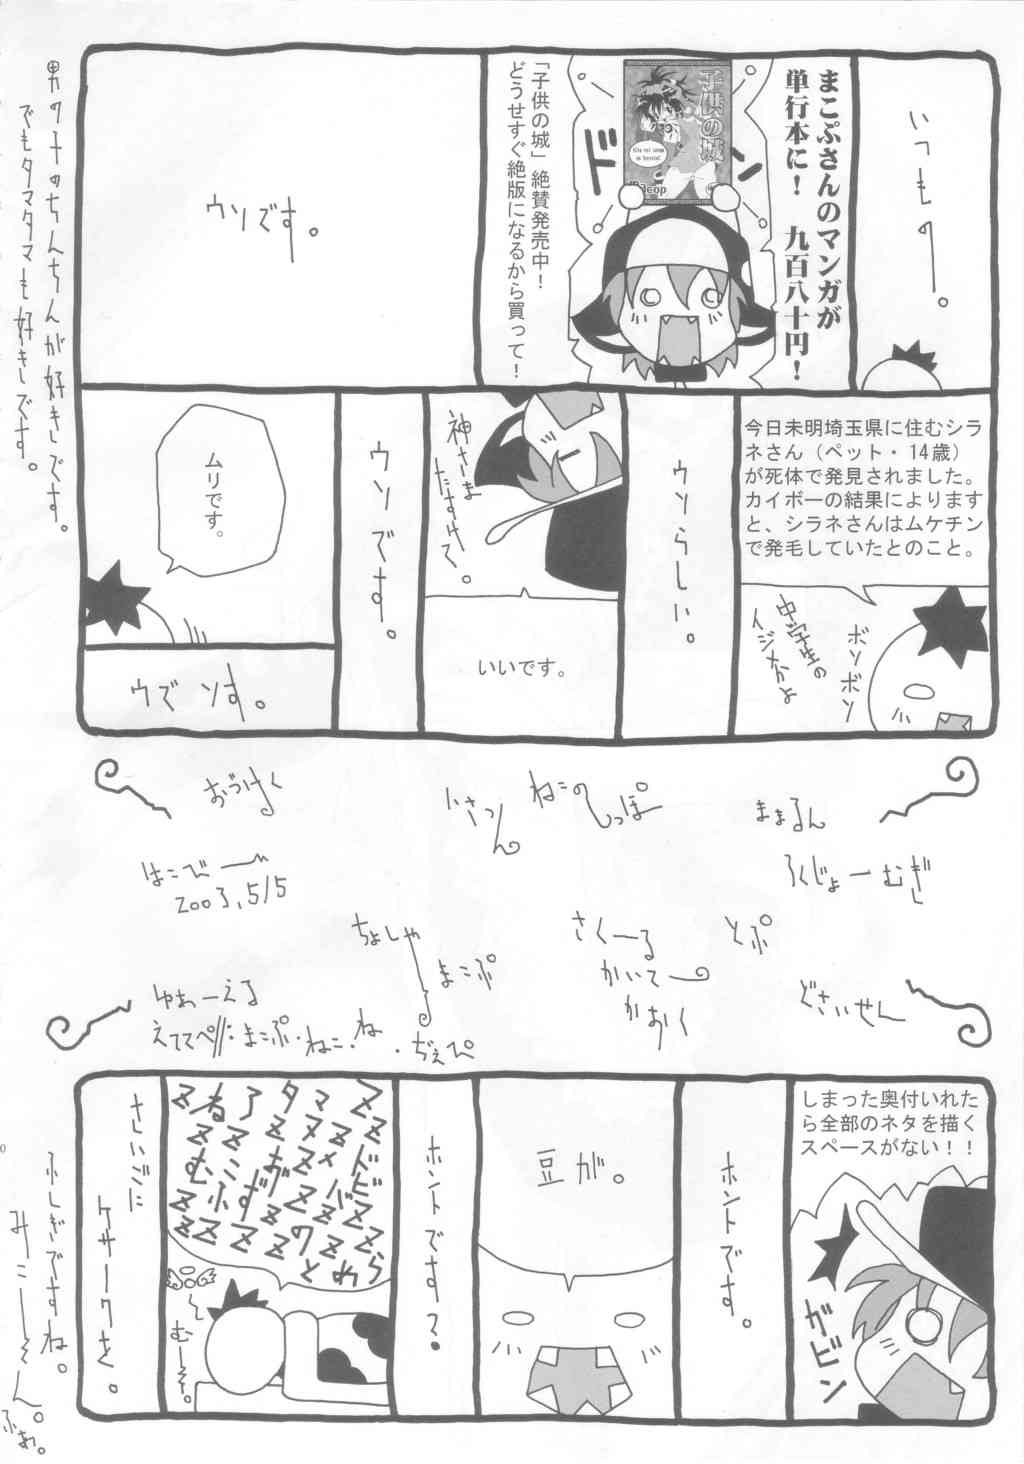 いつもの。
まこぷさんのマンガが
単行本に！　九百八十円！
ドン
子供の城
「子供の城」絶賛発売中！
どうせすぐ絶版になるから買って！
ウソです。
男の子のちんちんが好きです。
でもタマタマも好きです。
今日未明埼玉県に住むシラ
ネさん（ペット・14歳）
が死体で発見されました。
カイボーの結果によります
と、シラネさんはムケチン
で発毛していたとのこと。
ボソボソ
中学生の
イジメかよ
ウソらしい。
神さま
たすけて。
いいです。
ウソです。
ムリです。
ウズ ソす。
おづけく
ねこの
しっぽ
ままるん
ろくじょーむぎ
はこびー
2003.5/5
ちょしゃ
まこぷ
さくーる
かいてー
かおく
とぷ
どさいせん
ゆあーえる
しまった奥付いれた
ら全部のネタを描く
スペースがない！！
ガビン
ホントです。
豆が。
ホントです？
むーん。
さいごに
ケサークを。
ふしぎですね。
みこーん。
ふぁ。